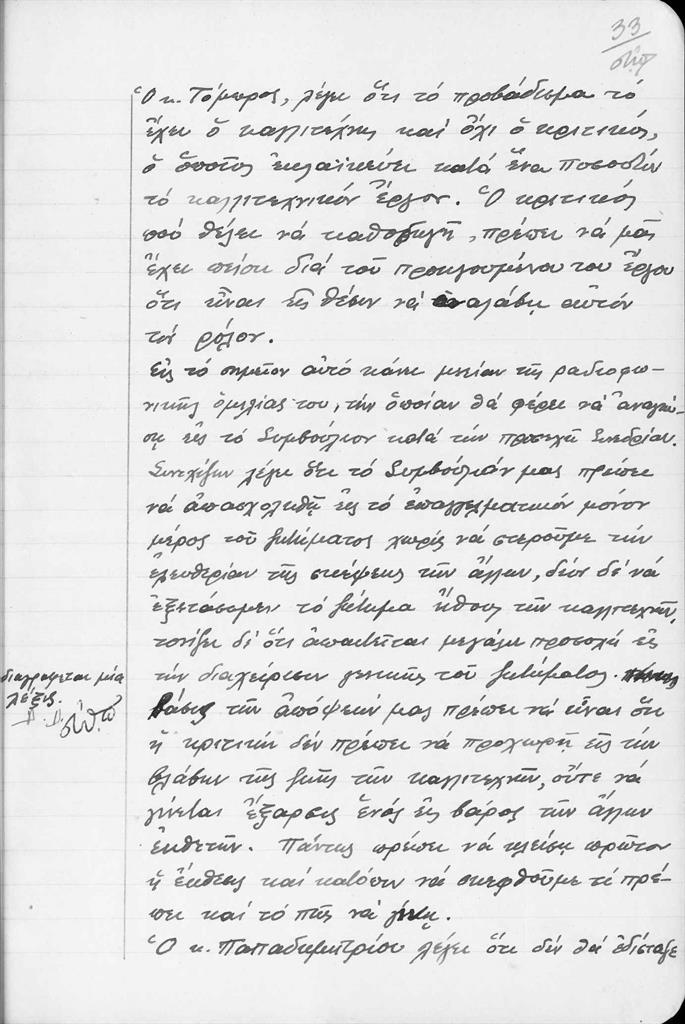 33
Ὁ κ. Τόμπρος, λέγει ὅτι τό προβάδισμα τό
ἔχει ὁ καλλιτέχνης καί ὄχι ὁ κριτικός,
ὁ ὁποῖος ἐκλαϊκεύει κατά ἕνα ποσοστόν
τό καλλιτεχνικόν ἔργον. Ὁ κριτικός
πού θέλει νά καθοδηγῇ, πρέπει νά μᾶς
ἔχει πείσει διά τοῦ προηγουμένου του ἔργου
ὅτι εἶναι εἰς θέσιν νά ἀναλάβῃ αὐτόν
τόν ρόλον.
Εἰς τό σημεῖον αὐτό κάνει μνείαν τῆς ραδιοφω-
νικῆς ὁμιλίας του, τήν ὁποίαν θά φέρει νά ἀναγνώ-
σῃ εἰς τό Συμβούλιον κατά τήν προσεχῆ Συνεδρίαν.
Συνεχίζων λέγει ὅτι τό Συμβούλιόν μας πρέπει
νά ἀπασχοληθῇ εἰς τό ἐπαγγελματικόν μόνον
μέρος τοῦ ζητήματος χωρίς νά στεροῦμε τήν
ἐλευθερίαν τῆς σκέψεως τῶν ἄλλων, δέον δέ νά
ἐξετάσομεν τό ζήτημα ἤθους τῶν καλλιτεχνῶν,
τονίζει δέ ὅτι ἀπαιτεῖται μεγάλη προσοχή εἰς
τήν διαχείρισιν γενικῶς τοῦ ζητήματος.
διαγράφεται μία
λέξις.
βάσις τῶν ἀπόψεών μας πρέπει νά εἶναι ὅτι
ἡ κριτική δέν πρέπει νά προχωρῇ εἰς τήν
βλάβην τῆς ζωῆς τῶν καλλιτεχνῶν, οὔτε νά
γίνεται ἔξαρσις ἑνός εἰς βάρος τῶν ἄλλων
ἐκθετῶν. Πάντως πρέπει νά κλείσῃ πρῶτον
ἡ ἔκθεσις καί κατόπιν νά σκεφθοῦμε τί πρέ-
πει καί τό πῶς νά γίνῃ.
Ὁ κ. Παπαδημητρίου λέγει ὅτι δέν θά ἐδίσταζε